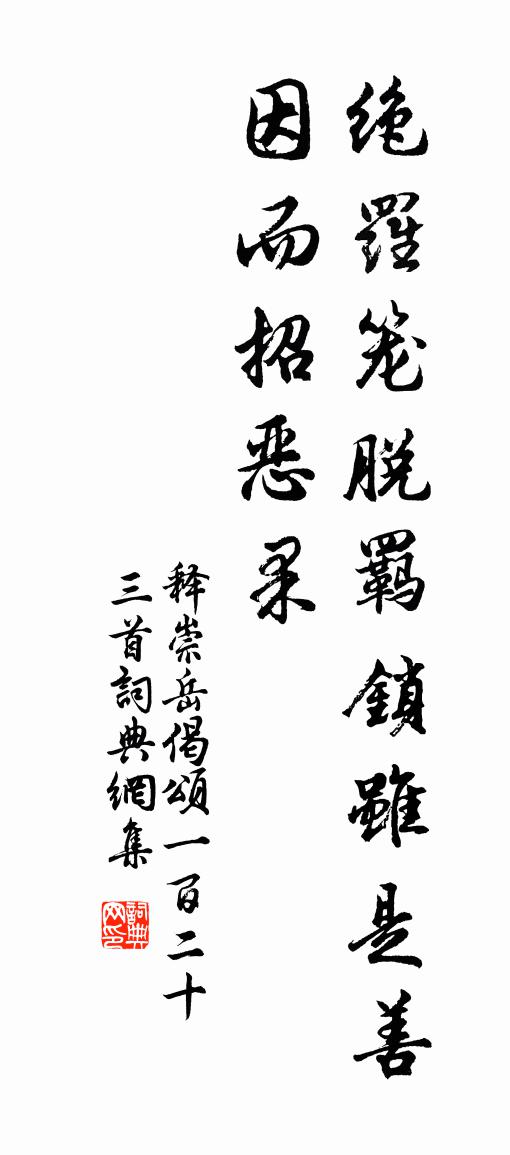 绝羅笼脱羁鎖雖是善
因而招恶果
释崇岳偈頌一百二十
三首詞典網集
詞典
网印